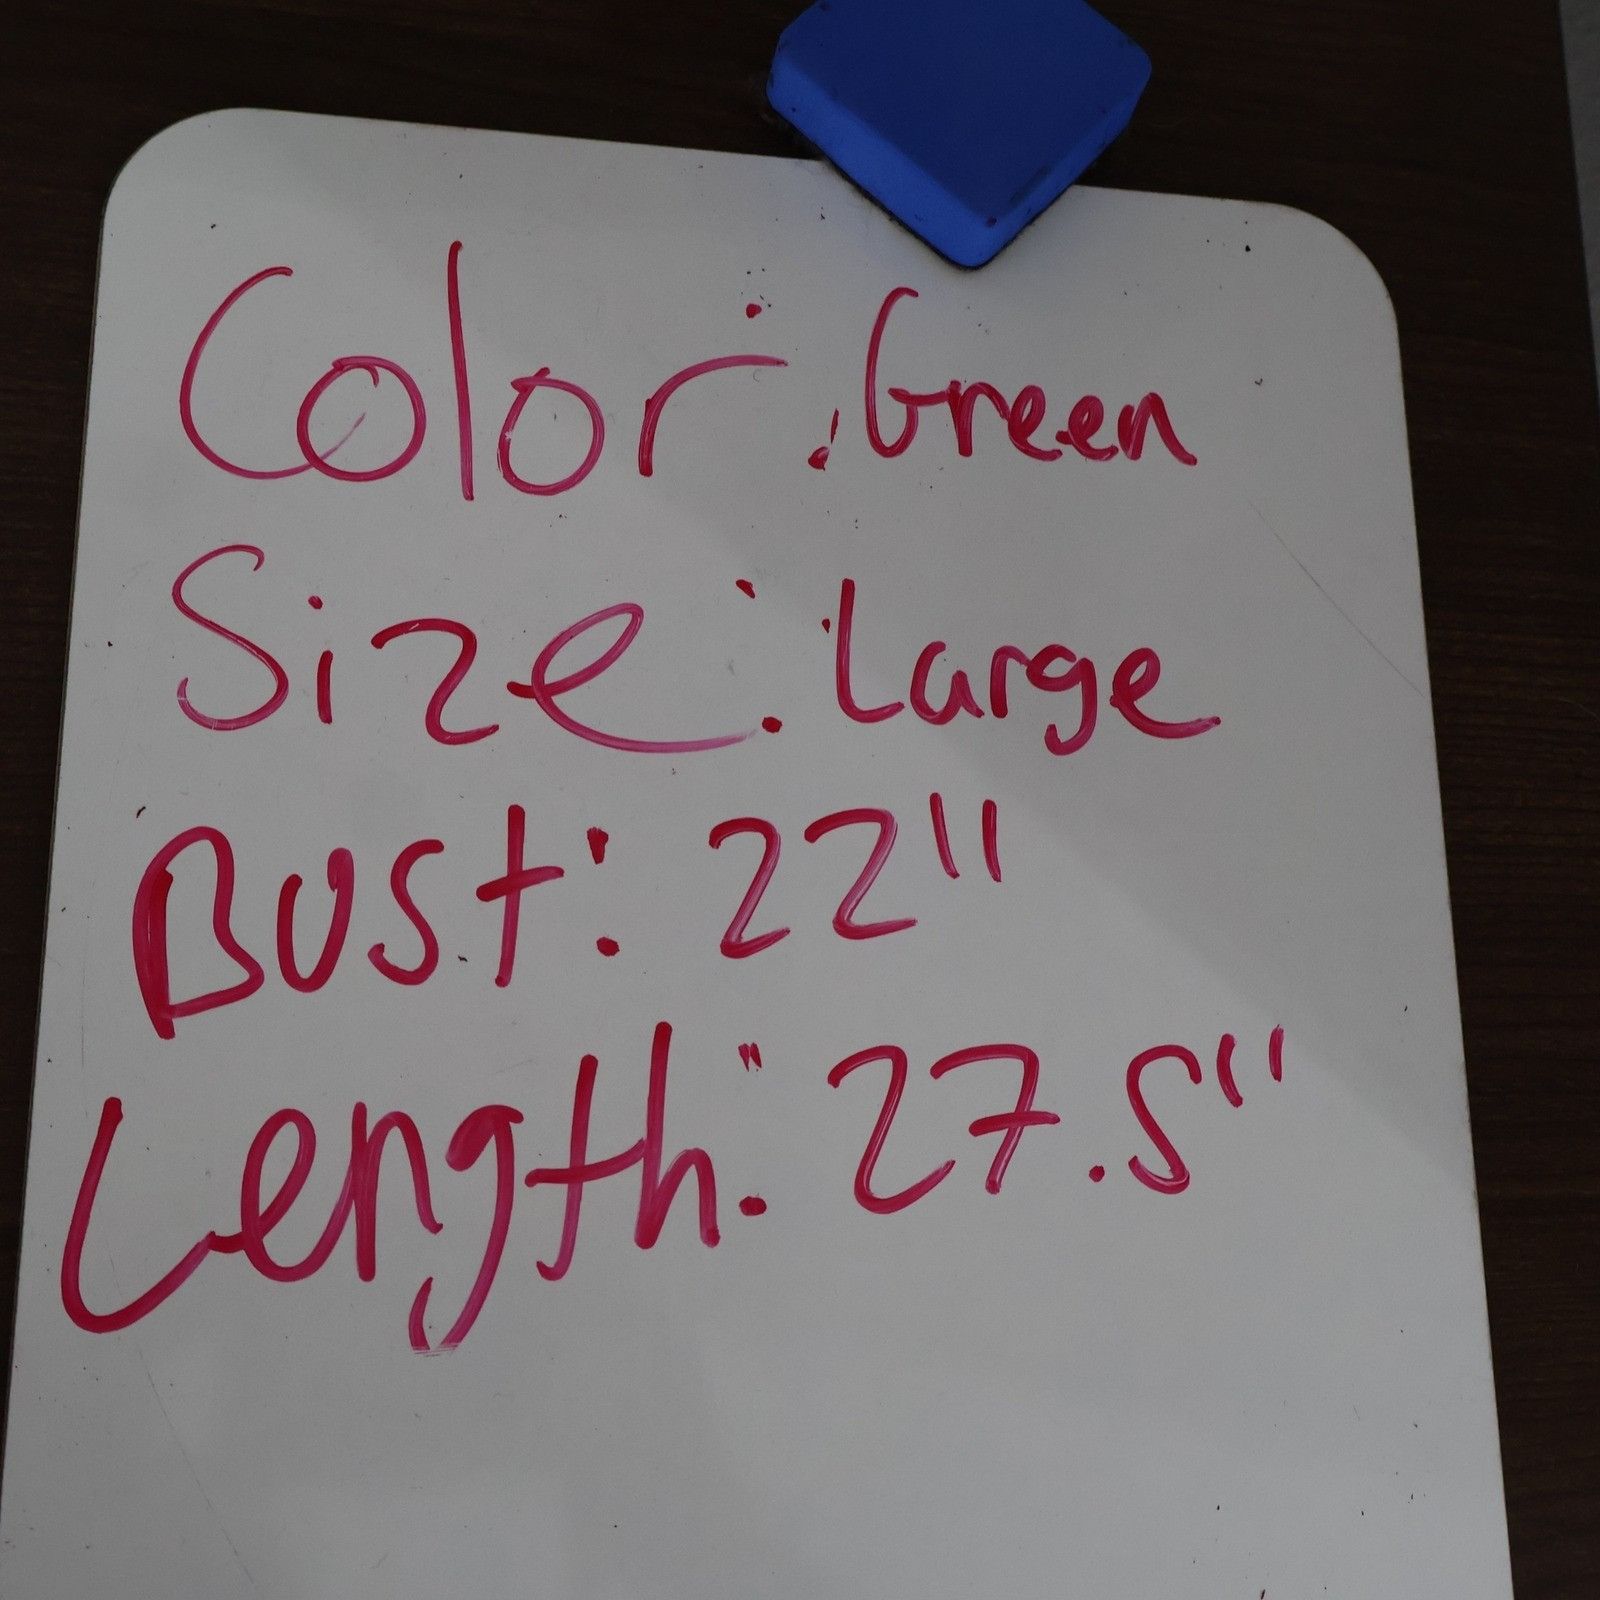 Color: Green
Size: Large
Bust: 22"
Length: 27.5"